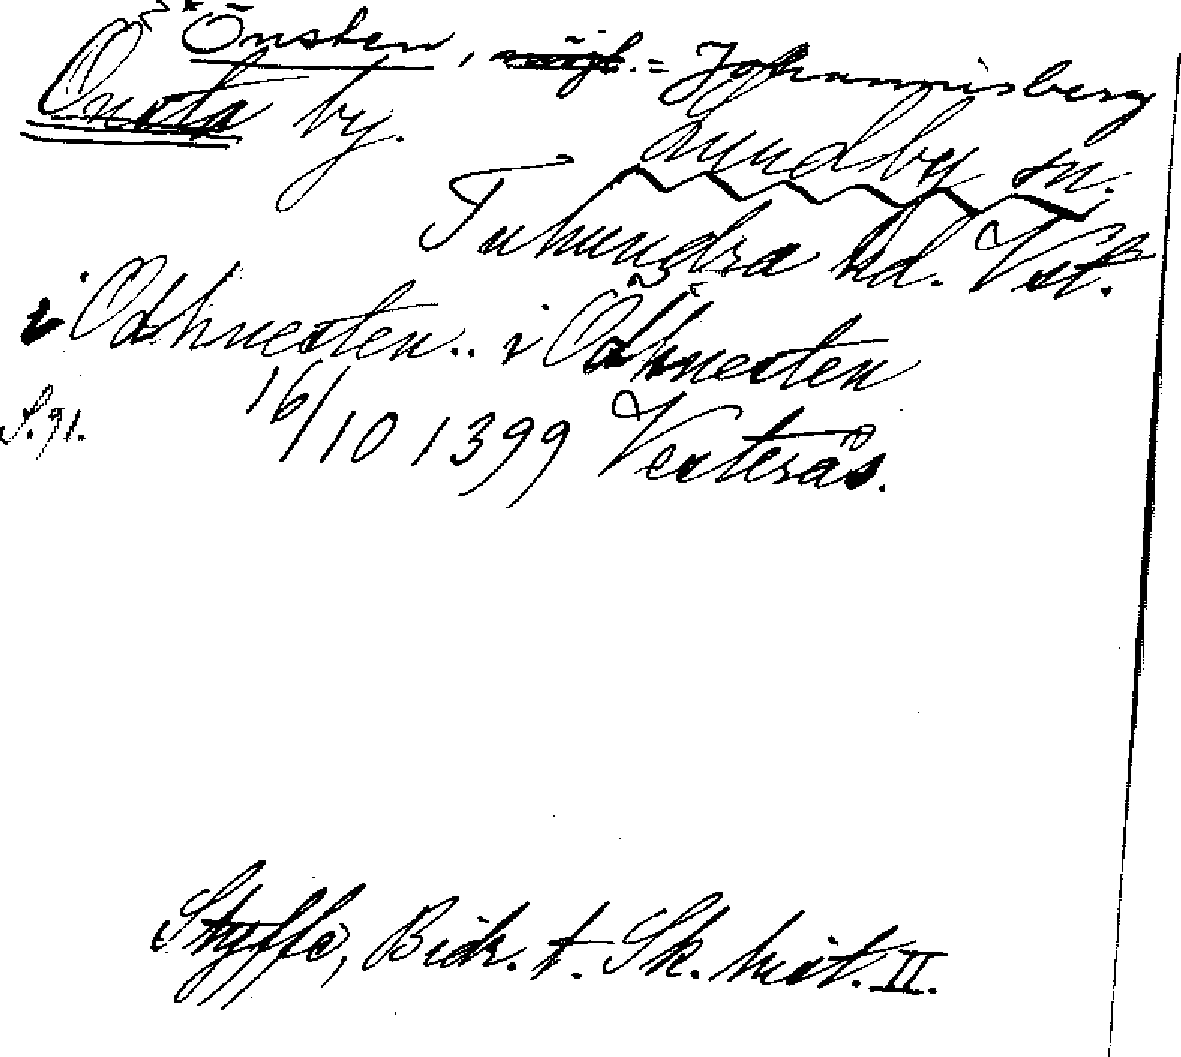 Önsten, möjl. = Johannisberg
Önsta by.
Lundby sn.
Tuhundra hd. Vstm.
i Odhnesten.. i Ödhnesten
S. 91. 16/10 1399 Vesterås.
Styffe, Bidr. t. Sk. hist. II.